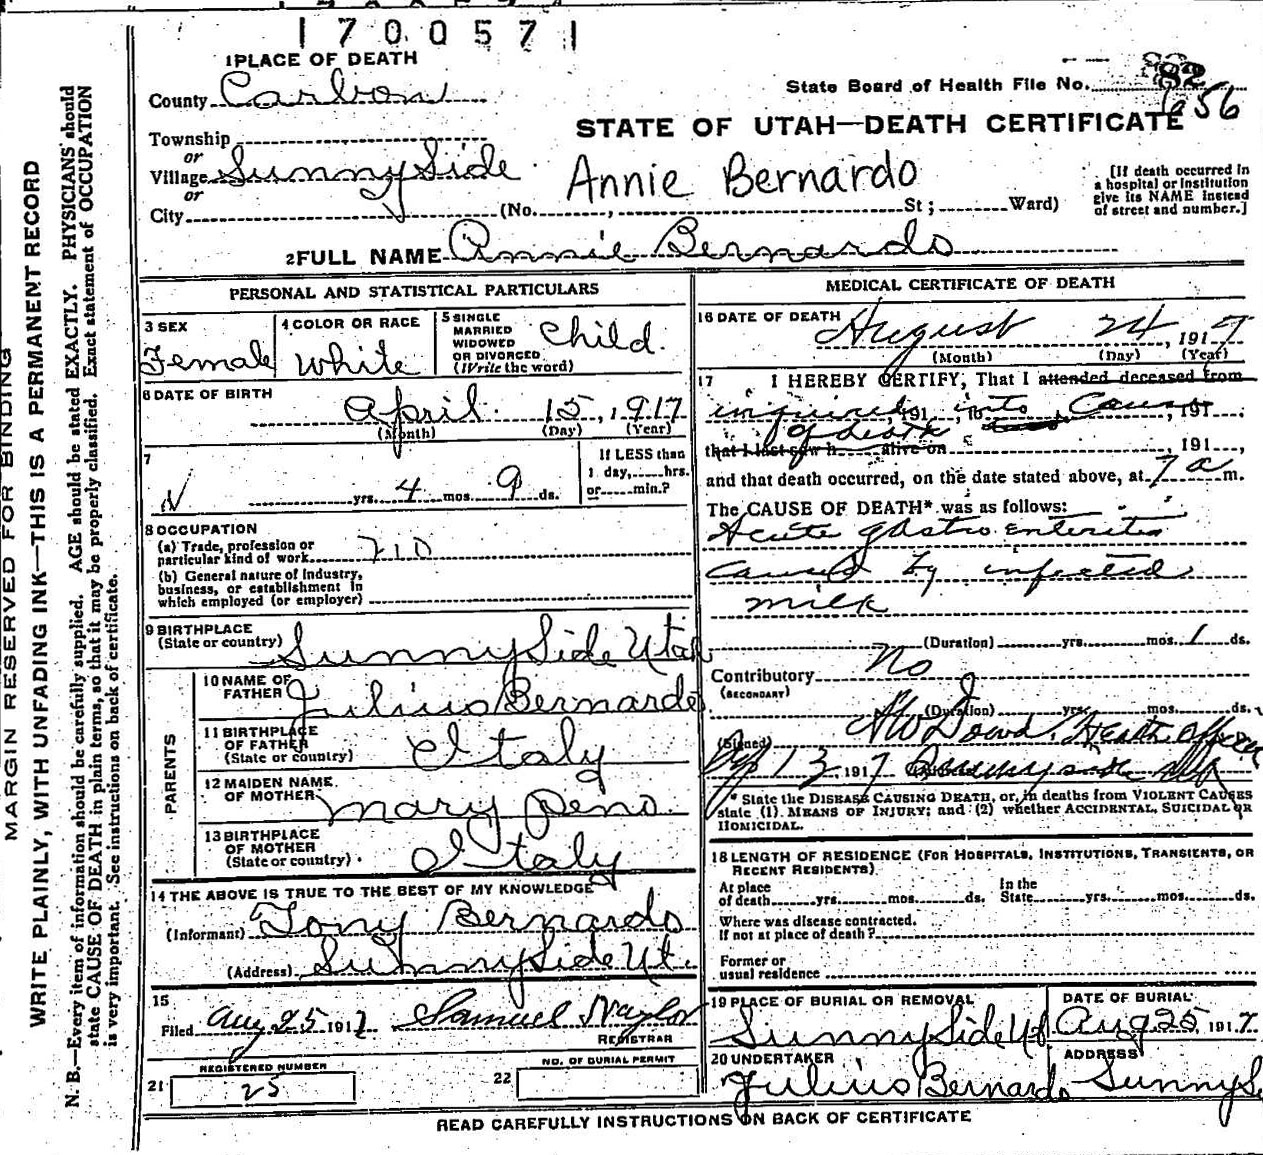 1700571
1 PLACE OF DEATH
County Carbon
State Board of Health File No. 82
656
STATE OF UTAH—DEATH CERTIFICATE
Township
or
Village SunnySide
or
City (No. , St; Ward)
Annie Bernardo
[If death occurred in a hospital or institution give its NAME instead of street and number.]
2 FULL NAME Annie Bernardo
PERSONAL AND STATISTICAL PARTICULARS
3 SEX Female
4 COLOR OR RACE White
5 SINGLE MARRIED WIDOWED OR DIVORCED (Write the word) Child.
6 DATE OF BIRTH April 15, 1917
(Month) (Day) (Year)
7 yrs. 4 mos. 9 ds.
If LESS than 1 day, hrs. or min.?
8 OCCUPATION
(a) Trade, profession or particular kind of work
(b) General nature of Industry, business, or establishment in which employed (or employer)
9 BIRTHPLACE (State or country) SunnySide Utah
PARENTS
10 NAME OF FATHER Julius Bernardo
11 BIRTHPLACE OF FATHER (State or country) Italy
12 MAIDEN NAME OF MOTHER Mary Peno.
13 BIRTHPLACE OF MOTHER (State or country) Italy
14 THE ABOVE IS TRUE TO THE BEST OF MY KNOWLEDGE
(Informant) Tony Bernardo
(Address) SunnySide Ut.
15 Filed Aug 25 1917 Samuel Naylor
REGISTRAR
REGISTERED NUMBER
21 25
NO. OF BURIAL PERMIT
22
MEDICAL CERTIFICATE OF DEATH
16 DATE OF DEATH August 24, 1917
(Month) (Day) (Year)
17 I HEREBY CERTIFY, That I attended deceased from
inquired, 191 , to into Cause, 191
of death
that I last saw h alive on , 191 ,
and that death occurred, on the date stated above, at 7 a m.
The CAUSE OF DEATH* was as follows:
Acute gastro enteritis
caused by infected
milk
(Duration) yrs. mos. 1 ds.
Contributory No
(SECONDARY)
(Duration) yrs. mos. ds.
(Signed) Dowd. Health Officer
13 1917 Sunnyside
* State the DISEASE CAUSING DEATH, or, in deaths from VIOLENT CAUSES state (1) MEANS OF INJURY; and (2) whether ACCIDENTAL, SUICIDAL or HOMICIDAL.
18 LENGTH OF RESIDENCE (FOR HOSPITALS, INSTITUTIONS, TRANSIENTS, OR RECENT RESIDENTS)
At place of death yrs. mos. ds. In the State yrs. mos. ds.
Where was disease contracted.
If not at place of death?
Former or usual residence
19 PLACE OF BURIAL OR REMOVAL SunnySide Ut
DATE OF BURIAL Aug 25, 1917.
20 UNDERTAKER Julius Bernardo
ADDRESS SunnyS
READ CAREFULLY INSTRUCTIONS ON BACK OF CERTIFICATE
MARGIN RESERVED FOR BINDING
WRITE PLAINLY, WITH UNFADING INK—THIS IS A PERMANENT RECORD
N. B.—Every item of information should be carefully supplied. AGE should be stated EXACTLY. PHYSICIANS should
state CAUSE OF DEATH in plain terms, so that it may be properly classified. Exact statement of OCCUPATION
is very important. See instructions on back of certificate.